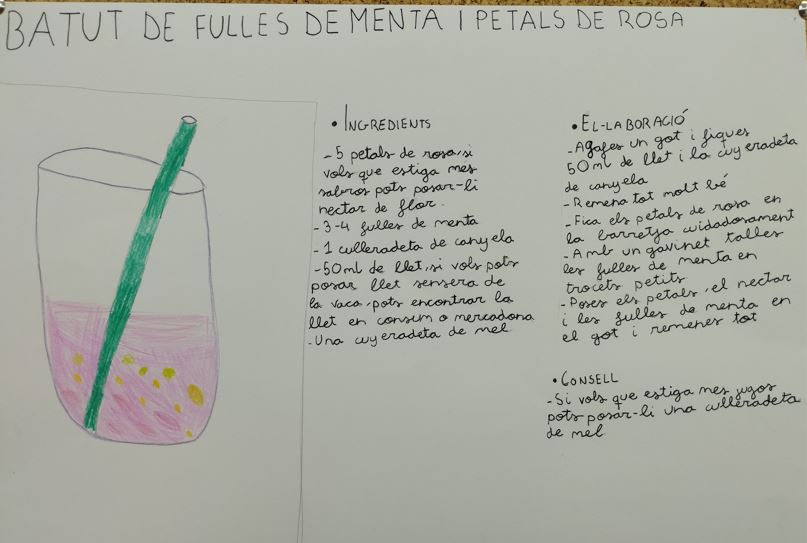 BATUT DE FULLES DE MENTA I PETALS DE ROSA
• INGREDIENTS
- 5 petals de rosa, si
vols que estiga mes
sabros pots posar-li
nectar de flor.
- 3-4 fulles de menta
- 1 culleradeta de canyela
- 50ml de llet, si vols pots
posar llet sensera de
la vaca, pots encontrar la
llet en consum o mercadona
- Una cuyeradeta de mel
• EL-LABORACIÓ
- Agafes un got i fiques
50 ml de llet i la cuyeradeta
de canyela
- Remena tot molt bé
- Fica els petals de rosa en
la barretja cuidadosament
- Amb un gavinet talles
les fulles de menta en
trocets petits
- Poses els petals, el nectar
i les fulles de menta en
el got i remenes tot
• CONSELL
- Si vols que estiga mes jugos
pots posar-li una culleradeta
de mel